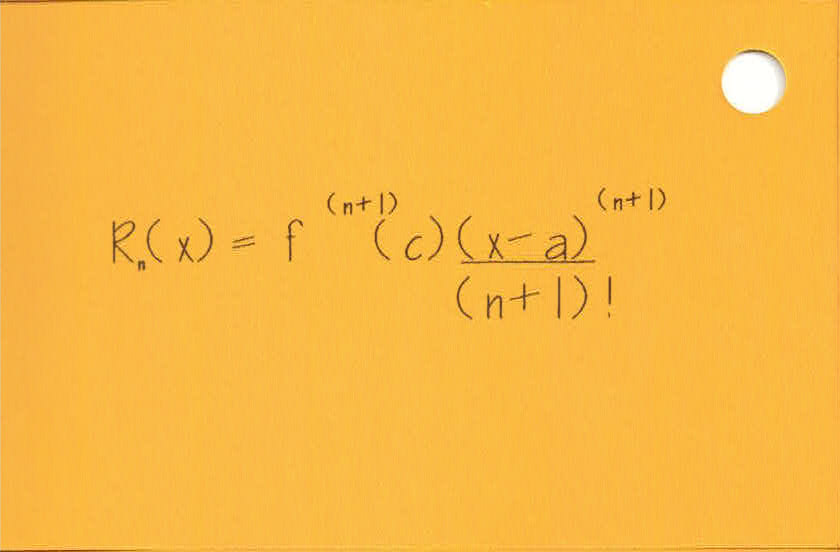 Rₙ(x) = f⁽ⁿ⁺¹⁾(c) (x-a)⁽ⁿ⁺¹⁾
(n+1)!